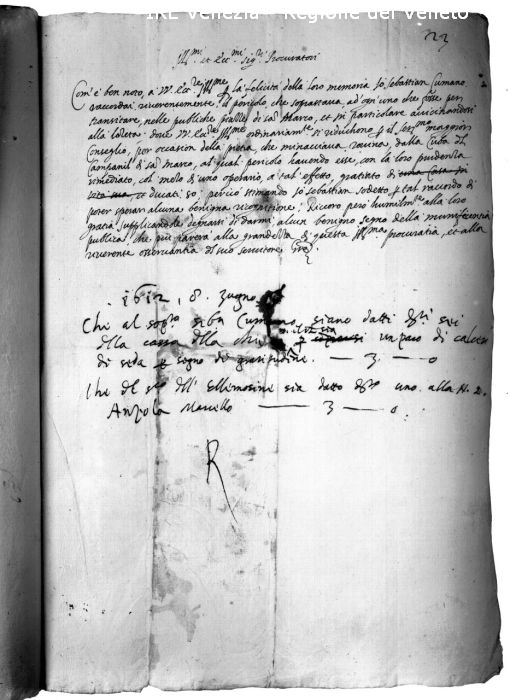 IRE Venezia - Regione del Veneto
23
Ill.mi et Ecc.mi Sig.ri Procuratori
Com'è ben noto, a V. Ecc.ze Ill.me la felicità della loro memoria Io Sebastian Cumano
raccordai riverentemente il pericolo che soprastava, ad ogni uno che fosse per
transitare, nelle publiche di San Marco, et in particolare avicinandosi
alla dove V. Ecc.ze Ill.me ordinariam.te si reduchono il Ser.mo maggior
Conseglio, per occasion della pietra, che minacciava rovina, dalla Cuba del
Campanil di San Marco, al qual pericolo havendo esse, con la loro prudentia
rimediato, col mezo d'uno operario, a tal effetto, gratiato di
et ducati 50, perciò stimando Io Sebastian sodetto, p tal racordo di
poter sperar alcuna benigna recognitione; Ricorro però humilm.te alla loro
gratia supplicandole degnarsi di darmi alcun benigno segno della munificentia
publica, che più parerà alla grandezza di questa Ill.ma procuratia, et alla
riverente osservantia del suo servitore. Gre.
1612, 8. zugno
Che al sop.to Sib.n Cumano, siano datti d.ti sei
della cassa della un paro di calce
di seda p segno de gratitudine. — 3 — 0
Che del dell' Ellimosine sia datto d.to uno alla N. D.
Anzola Marcello — 3 — 0.
R